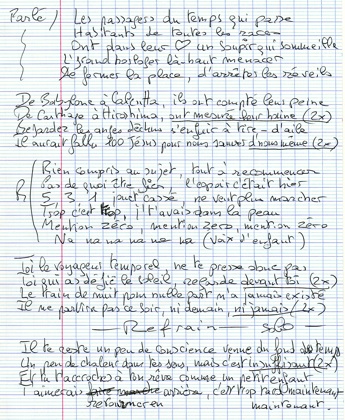 Parlé / Les passagers du temps qui passe
Habitants de toutes les races
Ont dans leur ♡ un soupir qui sommeille
L'grand horloger là-haut menace
De fermer la place, d'arrêter les réveils
De Babylone à Calcutta, ils ont compté leur peine
De Carthage à Hiroshima, ont mesuré leur haine (2x)
Regardez les anges déchus s'enfuir à tire-d'aile
Il aurait fallu 100 Jésus pour nous sauver d'nous même (2x)
Rien compris au sujet, tout à recommencer
Pas de quoi être fier, l'espoir c'était hier
R 5, 3, 1, jouet cassé ne veut plus marcher
Trop c'est trop, j't'avais dans la peau
Mention zéro, mention zéro, mention zéro
Na na na na na na (Voix d'enfant)
Toi le voyageur temporel, ne te presse donc pas
Toi qui as défié le soleil, regarde devant toi (2x)
Le train de nuit pour nulle part n'a jamais existé
Il ne partira pas ce soir, ni demain, ni jamais (2x)
— Refrain — solo —
Il te reste un peu de conscience venue du fond du temps
Un peu de chaleur dans tes sens, mais c'est insuffisant (2x)
Et tu t'accroches à ton rêve comme un petit enfant
aimerais arrière, c'est trop tard maintenant
retourner en maintenant.